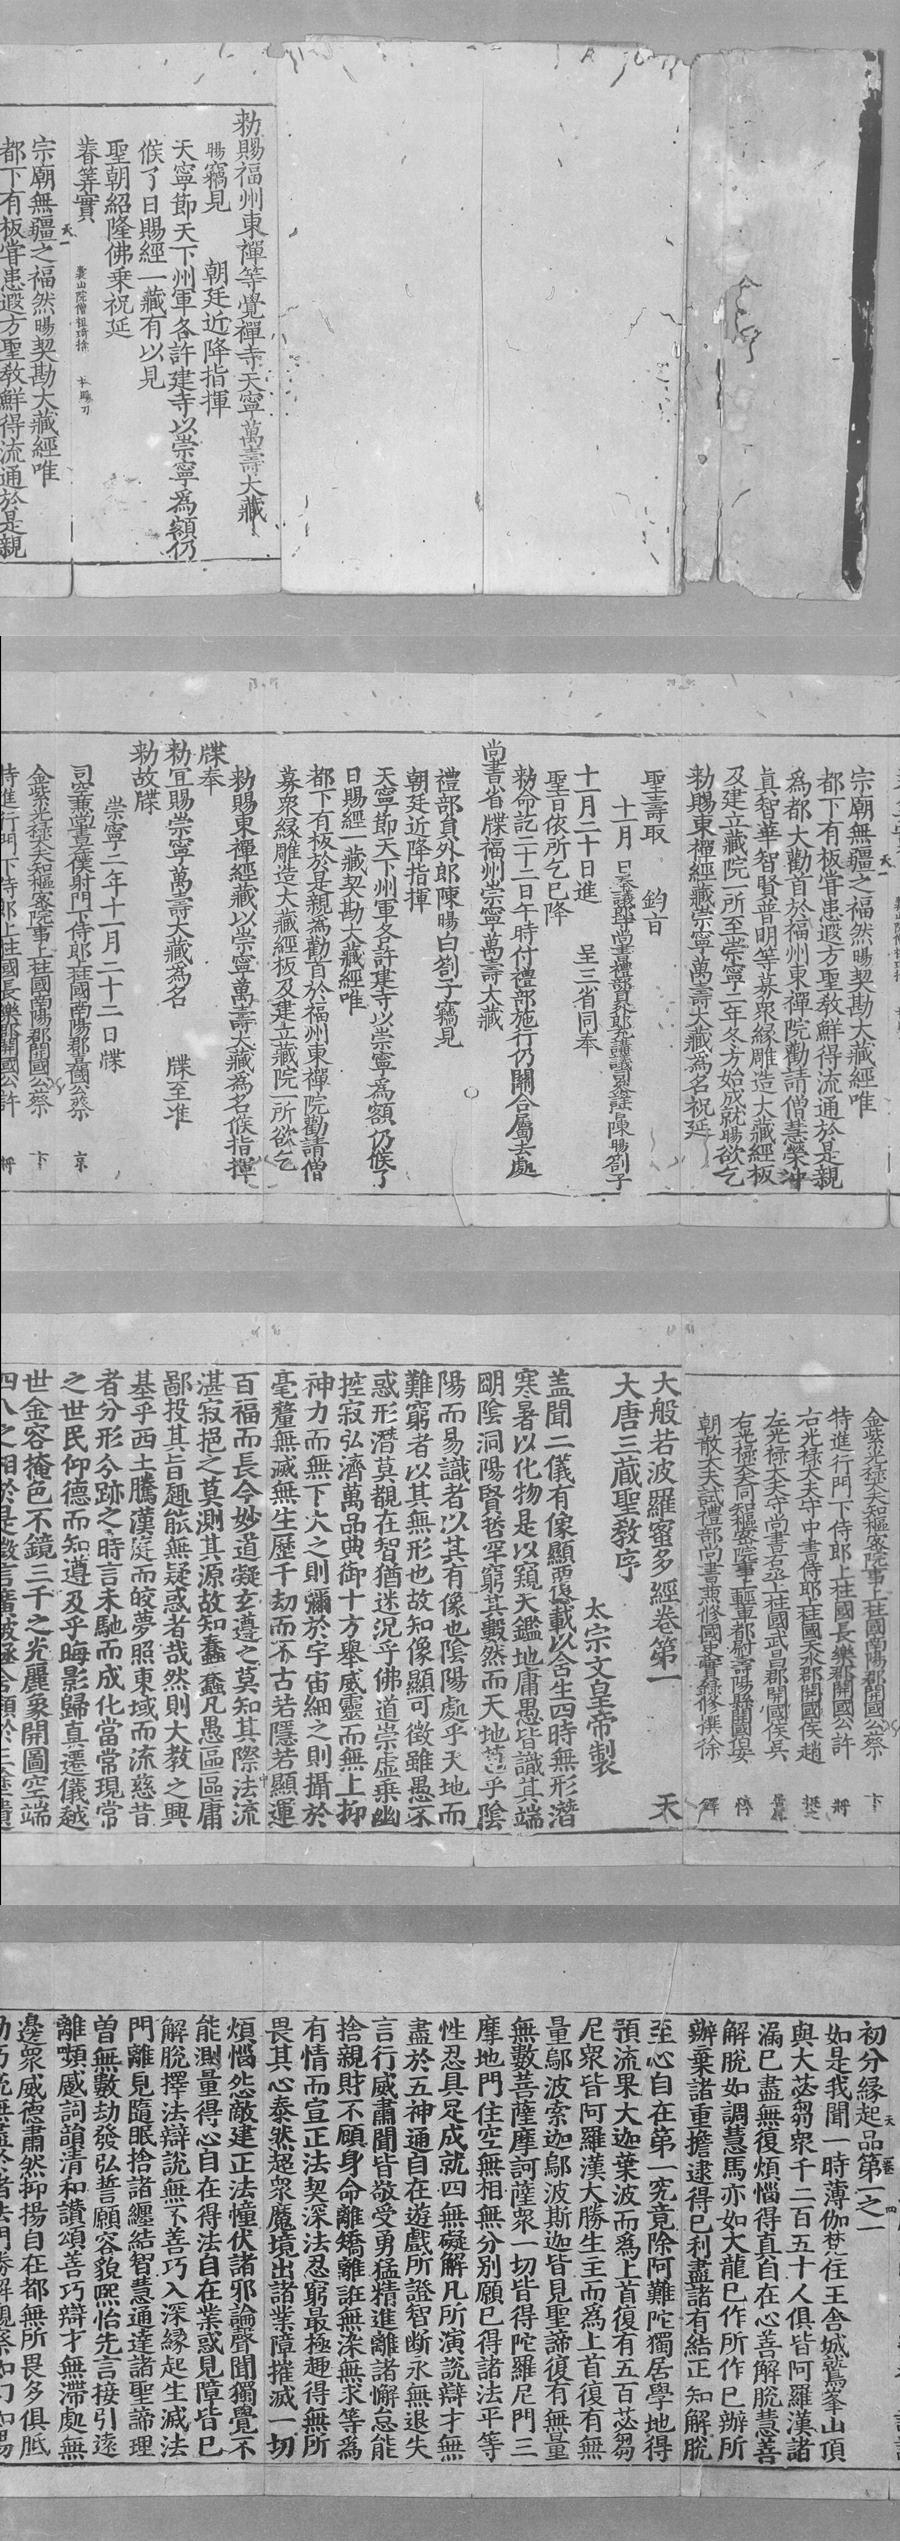 勑賜福州東禪等覺禪寺天寧萬壽大藏
暘竊見　朝廷近降指揮
天寧節天下州軍各許建寺以崇寧為額仍
候了日賜經一藏有以見
聖朝紹隆佛乗祝延
睿筭實
天一
宗廟無疆之福然暘契勘大藏經唯
都下有板甞患遐方聖教鮮得流通於是親
宗廟無疆之福然暘契勘大藏經唯
都下有板甞患遐方聖教鮮得流通於是親
為都大勸首於福州東禪院勸請僧慧榮冲
真智華智賢普明等募衆縁雕造大藏經板
及建立藏院一所至崇寧二年冬方始成就暘欲乞
勑賜東禪經藏崇寧萬壽大藏為名祝延
聖壽取　鈞旨
十一月　日奉議郎尚書禮部員外郎充講議司參詳官陳暘劄子
十一月二十日進　呈三省同奉
聖旨依所乞已降
勑命訖二十二日午時付禮部施行仍關合屬去處
尚書省牒福州崇寧萬壽大藏
禮部員外郎陳暘白劄子竊見
朝廷近降指揮
天寧節天下州軍各許建寺以崇寧為額仍候了
日賜經一藏契勘大藏經唯
都下有板於是親為勸首於福州東禪院勸請僧
募衆縁雕造大藏經板及建立藏院一所欲乞
勑賜東禪經藏以崇寧萬壽大藏為名候指揮
牒奉
勑宜賜崇寧萬壽大藏為名　牒至准
勑故牒
崇寧二年十一月二十二日牒
司空兼尚書左僕射門下侍郎上柱國南陽郡開國公蔡　京
金紫光禄大夫知樞密院事上柱國南陽郡開國公蔡　卞
特進行門下侍郎上柱國長樂郡開國公許　將
金紫光禄大夫知樞密院事上柱國南陽郡開國公蔡　卞
特進行門下侍郎上柱國長樂郡開國公許　將
右光禄大夫守中書侍郎上柱國天水郡開國侯趙　挺之
左光禄大夫守尚書右丞上柱國武昌郡開國侯吳　居厚
右光禄大夫同知樞密院事上輕車都尉壽陽縣開國伯安　惇
朝散大夫試禮部尚書兼修國史實錄修撰徐　鐸
大般若波羅蜜多經卷第一　天
大唐三藏聖教序
太宗文皇帝製
盖聞二儀有像顯覆載以含生四時無形潛
寒暑以化物是以窺天鑑地庸愚皆識其端
明陰洞陽賢哲罕窮其數然而天地苞乎陰
陽而易識者以其有像也陰陽處乎天地而
難窮者以其無形也故知像顯可徵雖愚不
惑形潛莫覩在智猶迷況乎佛道崇虚乗幽
控寂弘濟萬品典御十方舉威靈而無上抑
神力而無下大之則彌於宇宙細之則攝於
毫釐無滅無生歷千劫而不古若隱若顯運
百福而長今妙道凝玄遵之莫知其際法流
湛寂挹之莫測其源故知蠢蠢凡愚區區庸
鄙投其旨趣能無疑惑者哉然則大教之興
基乎西土騰漢庭而皎夢照東域而流慈昔
者分形分跡之時言未馳而成化當常現常
之世民仰德而知遵及乎晦影歸真遷儀越
世金容掩色不鏡三千之光麗象開圖空端
四八之相於是微言廣被拯含類於三塗遺
初分縁起品第一之一
如是我聞一時薄伽梵住王舎城鷲峯山頂
與大苾芻衆千二百五十人俱皆阿羅漢諸
漏已盡無復煩惱得真自在心善解脫慧善
解脫如調慧馬亦如大龍已作所作已辦所
辦棄諸重擔逮得已利盡諸有結正知解脫
至心自在第一究竟除阿難陀獨居學地得
預流果大迦葉波而為上首復有五百苾芻
尼衆皆阿羅漢大勝生主而為上首復有無
量鄔波索迦鄔波斯迦皆見聖諦復有無量
無數菩薩摩訶薩衆一切皆得陀羅尼門三
摩地門住空無相無分別願已得諸法平等
性忍具足成就四無礙解凡所演說辯才無
盡於五神通自在遊戲所證智断永無退失
言行威肅聞皆敬受勇猛精進離諸懈怠能
捨親財不顧身命離矯離誑無染無求等為
有情而宣正法契深法忍窮最極趣得無所
畏其心泰然超衆魔境出諸業障摧滅一切
煩惱怨敵建正法幢伏諸邪論聲聞獨覺不
能測量得心自在得法自在業惑見障皆已
解脫擇法辯說無不善巧入深縁起生滅法
門離見隨眠捨諸纏結智慧通達諸聖諦理
曽無數劫發弘誓願容貌熙怡先言接引逺
離嚬蹙詞韻清和讃頌善巧辯才無滯處無
邊衆威德肅然抑揚自在都無所畏多俱胝